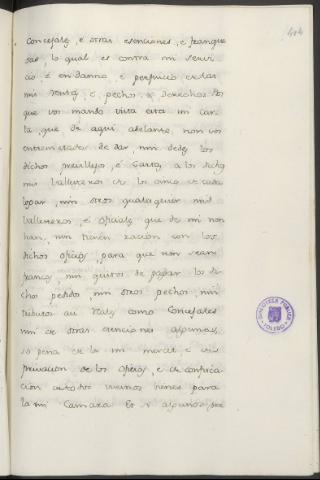 404
Concejales, e otras esenciones, e franque
sas, lo qual es contra mi servi
cio é en danno, é perjuicio de las
mis rentas, é pechos, e derechos Por
que vos mando vista esta mi car
ta, que de aqui adelante, non vos
entremetades de dar, nin dedes los
dichos previllejos, é Cartas a los dichos
mis vallesteros de los dichos
logar, nin otros qualesquier mis
vallesteros, é oficiales que de mi non
han, nin tienen racion con los
dichos oficios, para que non sean
francos, nin quitos de pagar los di
chos pedidos, nin otros pechos, nin
tributos asi Reales como Concejales
nin de otras esenciones algunas,
so pena de la mi merced e de
privacion de los oficios, e de confisca
cion de todos vuestros bienes para
la mi Camara E si algunos, de
BIBLIOTECA PUBLICA
TOLEDO